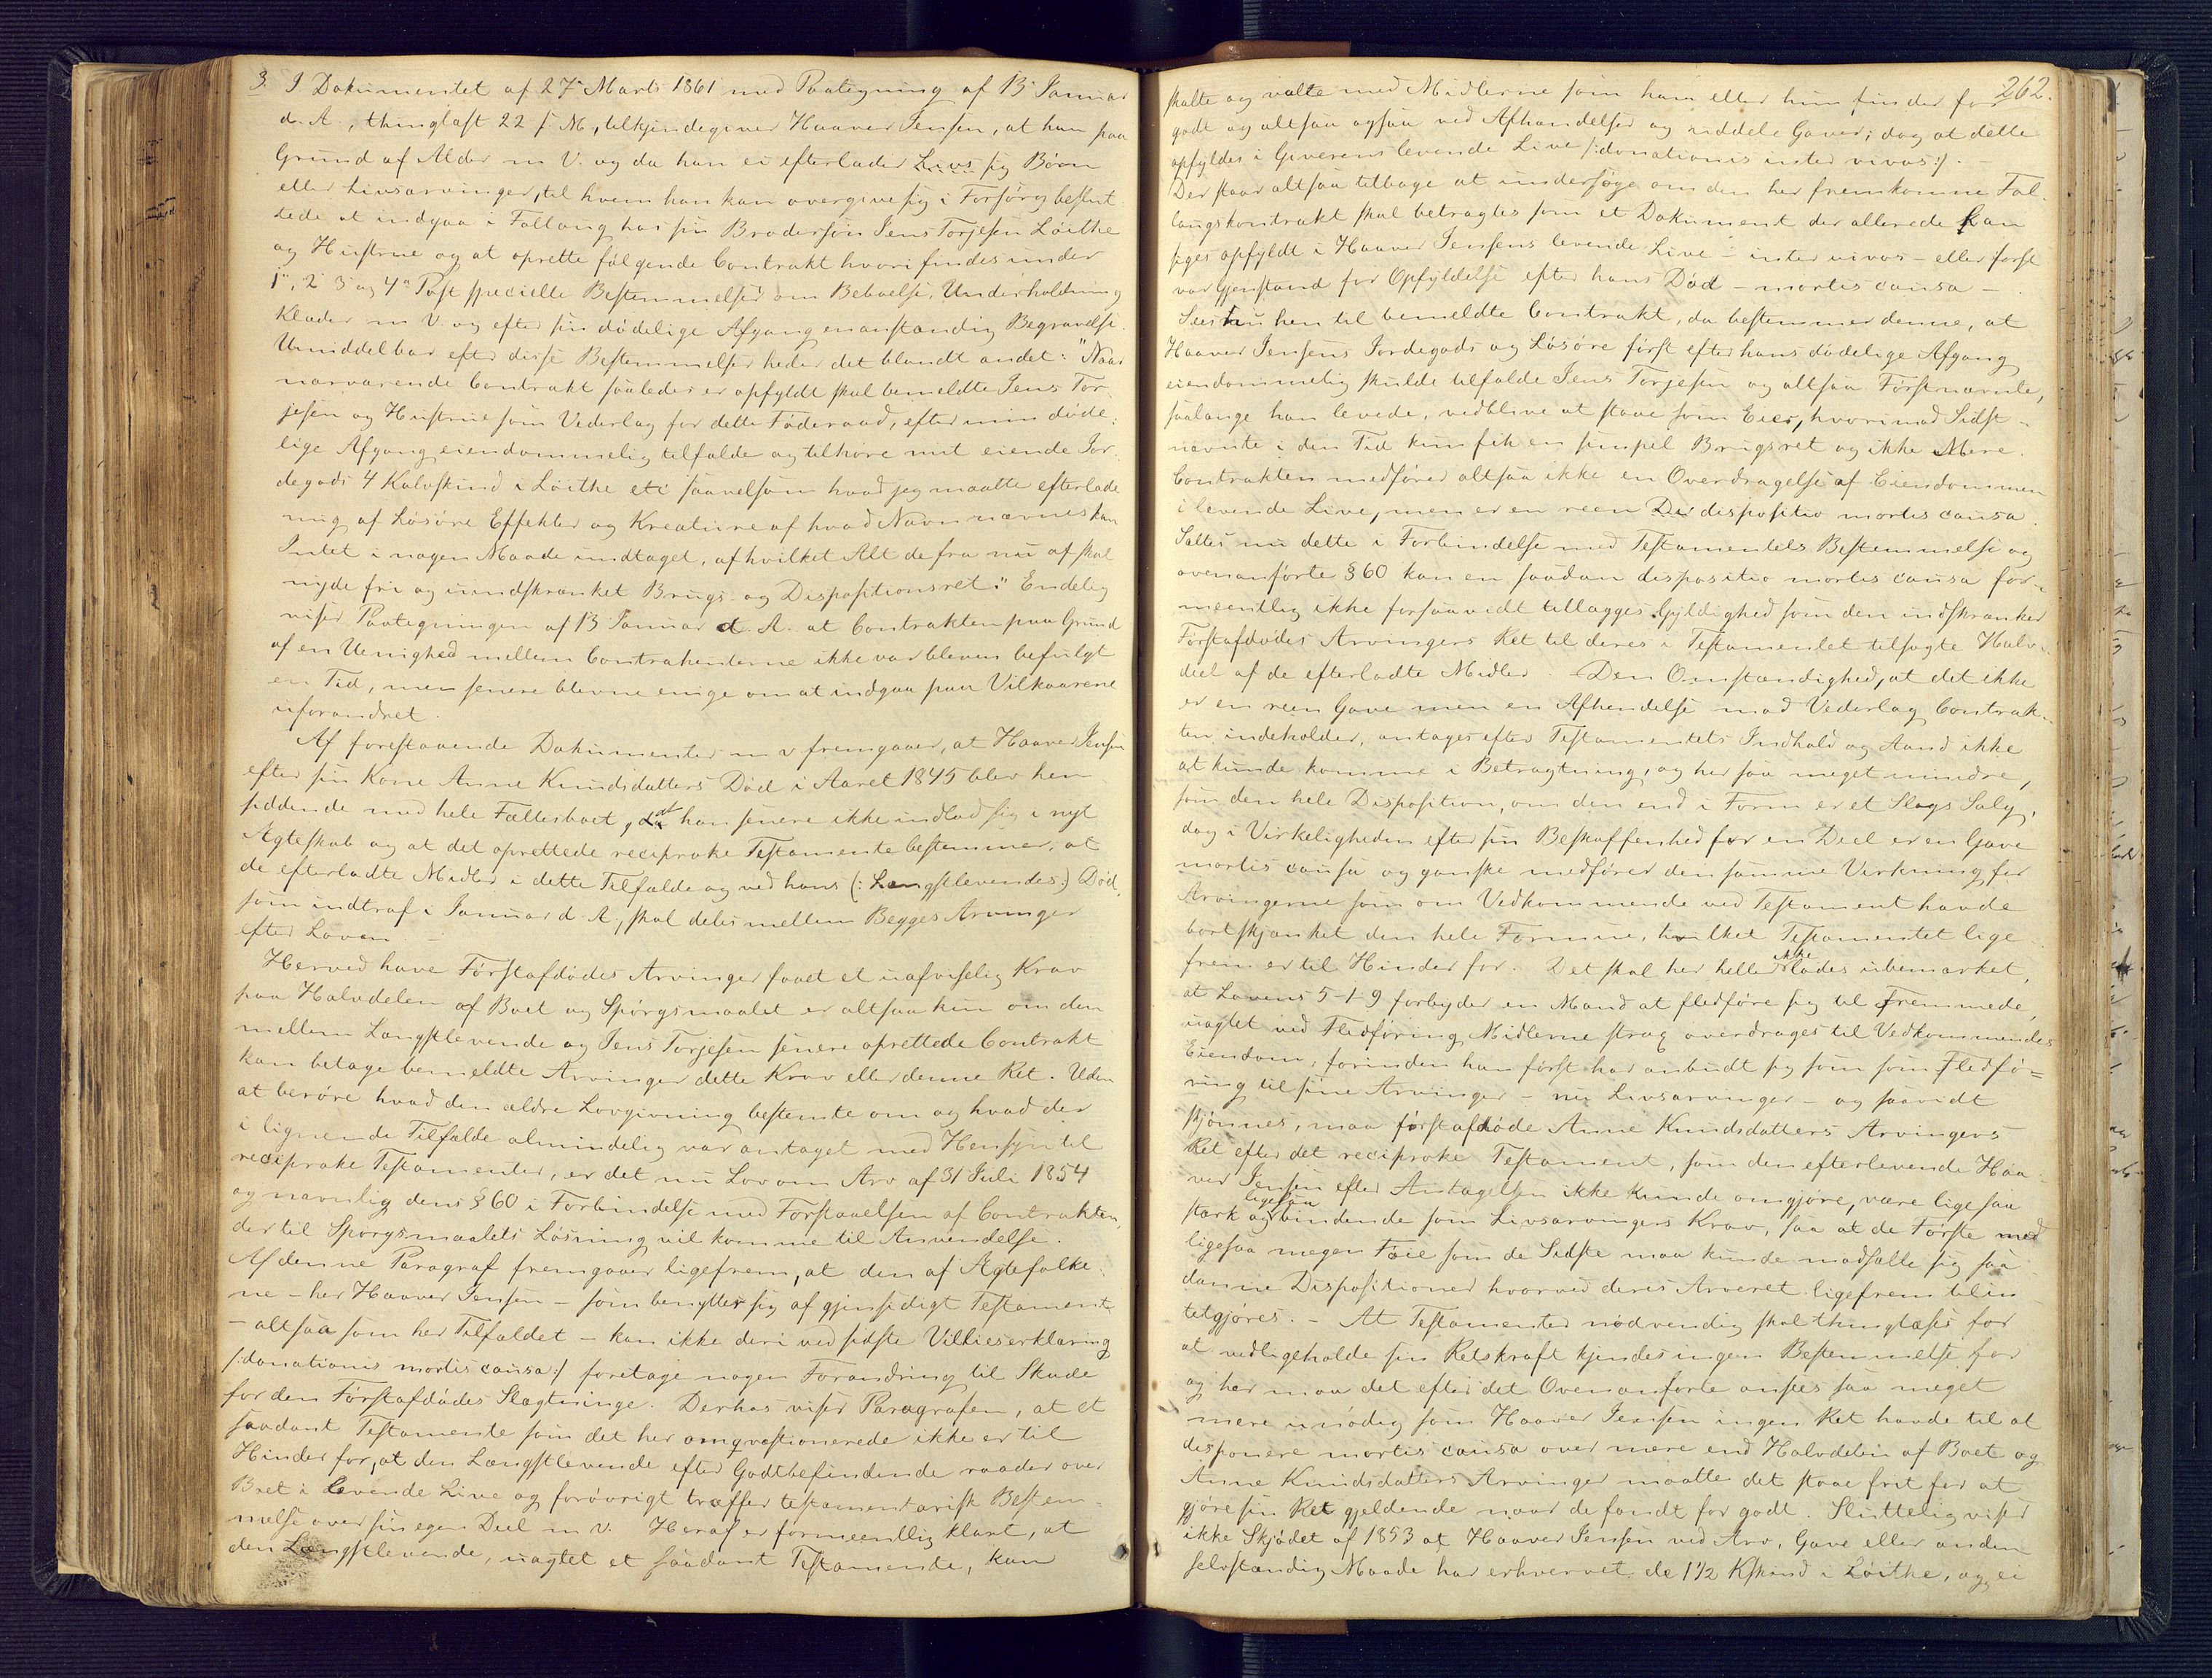 3. I Dokumentet af 27 Marts 1861 med Paategning af 13 Januar
d. A., thinglæst 22 s. M., tilkjendegiver Haaver Jensen, at han paa
Grund af Alder m V. og da han ei efterlader Livs sig Börn
eller Livsarvinger, til hvem han kan overgive sig i Forsörg beslut-
tede at indgaa i Fællaug hos sin Brodersön Jens Torjesen Löithe
og Hustrue og at oprette fölgende Contrakt hvori findes under
1", 2" 3" og 4" Post specielle Bestemmelser om Beboelse, Underholdning
Klæder m V og efter sin dödelige Afgang en anstændig Begravelse.
Umiddelbar efter disse Bestemmelser heder det blandt andet: "Naar
nærværende Contrakt saaledes er opfyldt skal bemeldte Jens Tor-
jesen og Hustrue som Vederlag for dette Föderaad, efter min döde-
lige Afgang eiendommelig tilfalde og tilhöre mit eiende Jor-
degods 4 Kalvskind i Löithe saavelsom hvad jeg maatte efterlade
mig af Lösöre Effekter og Kreature af hvad Navn nævnes kan
Intet i nogen Maade undtaget, af hvilket Alt de fra nu af skal
nyde fri og uindskrænket Brugs- og Dispositionsret." Endelig
viser Paategningen af 13 Januar d. A. at Contrakten paa Grund
af en Uenighed mellem Contrahenterne ikke var bleven befulgt
en Tid, men senere blevne enige om at indgaa paa Vilkaarene
uforandret.
Af forestaaende Dokumenter m v fremgaaer, at Haaver Jensen
efter sin Kone Anne Knudsdatters Död i Aaret 1845 blev hen
siddende med hele Fællesboet, at han senere ikke indlod sig i nyt
Ægteskab og at det oprettede reciproke Testamente bestemmer, at
de efterladte Midler i dette Tilfælde og ved hans (: Længstlevendes:) Död,
som indtraf i Januar d. A., skal deles mellem Begges Arvinger
efter Loven. -
Herved have Förstafdödes Arvinger faaet et uafviselig Krav
paa Halvdelen af Boet og Spörgsmaalet er altsaa kun om den
mellem Længstlevende og Jens Torjesen senere oprettede Contrakt
kan betage bemeldte Arvinger dette Krav eller denne Ret. Uden
at beröre hvad den ældre Lovgivning bestemte om og hvad der
i lignende Tilfælde almindelig var antaget med Hensyn til
reciproke Testamenter, er det nu Lov om Arv af 31 Juli 1854
og navnlig dens § 60 i Forbindelse med Forstaaelsen af Contrakten,
der til Spörgsmaalets Lösning vil komme til Anvendelse.
Af denne Paragraf fremgaaer ligefrem, at den af Ægtefolke-
ne - her Haaver Jensen - som benytter sig af gjensidigt Testament
- altsaa som her Tilfældet - kan ikke deri ved sidste Villieserklæring
/:donationis mortis causa:/ foretage nogen Forandring til Skade
for den Förstafdödes Slægtninge. Derhos viser Paragrafen, at et
saadant Testamente som det her omqvæstionerede ikke er til
Hinder for, at den Længstlevende efter Godtbefindende raader over
Boet i levende Live og forövrigt træffer testamentarisk Bestem-
melse over sin egen Deel m v. Heraf er formeentlig klart, at
den Længstlevende, uagtet et saadant Testamente, kan
262.
skalte og valte med Midlerne som han eller hun finder for
godt og altsaa ogsaa ved Afhændelser og Gaver; dog at dette
opfyldes i Giverens levende Live /:donationis inter vivos:/.
Der staar altsaa tilbage at undersöge om den her fremkomne Fæl-
laugskontrakt skal betragtes som et Dokument der allerede kan
siges opfyldt i Haaver Jensens levende Live - inter vivos - eller först
var Gjenstand for Opfyldelse efter hans Död - mortis causa -
Sees nu hen til bemeldte Contrakt, da bestemmer denne, at
Haaver Jensens Jordegods og Lösöre först efter hans dödelige Afgang
eiendommelig skulde tilfalde Jens Torjesen og altsaa Förstnævnte,
saalænge han levede, vedblive at staae som Eier, hvorimod Sidst-
nævnte i den Tid kun fik en simpel Brugsret og ikke Mere.
Contrakten medförer altsaa ikke en Overdragelse af Eiendommen
i levende Live, men er en reen dispositio mortis causa.
Sættes nu dette i Forbindelse med Testamentets Bestemmelse og
ovenanförte § 60 kan en saadan dispositio mortis causa for-
meentlig ikke forsaavidt tillægges Gyldighed som den indskrænker
Förstafdödes Arvingers Ret til deres i Testamentet tilsagte Halv-
deel af de efterladte Midler. Den Omstændighed, at det ikke
er en reen Gave men en Afhendelse mod Vederlag Contrak-
ten indeholder, antages efter Testamentets Indhold og Aand ikke
at kunde komme i Betragtning, og her saa meget mindre,
som den hele Disposition, om den end i Form er et Slags Salg,
dog i Virkeligheden efter sin Beskaffenhed for en Deel er en Gave
mortis causa og ganske medförer den samme Virkning for
Arvingerne som om Vedkommende ved Testament havde
bortskjænket den hele Formue, hvilket Testamentet lige
frem er til Hinder for. Det skal her heller ikke lades ubemærket,
at Lovens 5-1-9 forbyder en Mand at fledföre sig til Fremmede,
uagtet ved Fledföring Midlerne strax overdrages til Vedkommendes
Eiendom, forinden han först har anbudt sig som som Fledfö=
ring til sine Arvinger - nu Livsarvinger - og saavidt
skjönnes, maa förstafdöde Anne Knudsdatters Arvingers
Ret efter det reciproke Testament, som den efterlevende Haa-
ver Jensen efter Antagelsen ikke kunde omgjöre, være ligesaa
stærk og ligesaa bindende som Livsarvingers Krav, saa at de Förste med
ligesaa megen Föie som de Sidste maa kunde modsætte sig saa-
danne Dispositioner hvorved deres Arveret ligefrem tilin-
tetgjöres. - At Testamenter nödvendig skal thinglæses for
at vedligeholde sin Retskraft kjendes ingen Bestemmelse for
og her maa det efter det Ovenanförte ansees saa meget
mere unödig som Haaver Jensen ingen Ret havde til at
disponere mortis causa over mere end Halvdelen af Boet og
Anne Knudsdatters Arvinger maatte det staae frit for at
gjöre sin Ret gjeldende naar de fandt for godt. Sluttelig viser
ikke Skjödet af 1853 at Haaver Jensen ved Arv, Gave eller anden
selvstændig Maade har erhvervet de 1 1/2 Kskind i Löithe, og ei